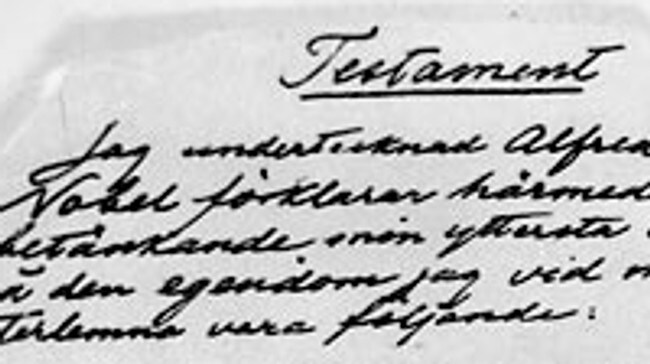 Testament
Jag undertecknad Alfred
Nobel förklarar härmed
betänkande min yttersta
å den egendom jag vid
terlemna vara följande: